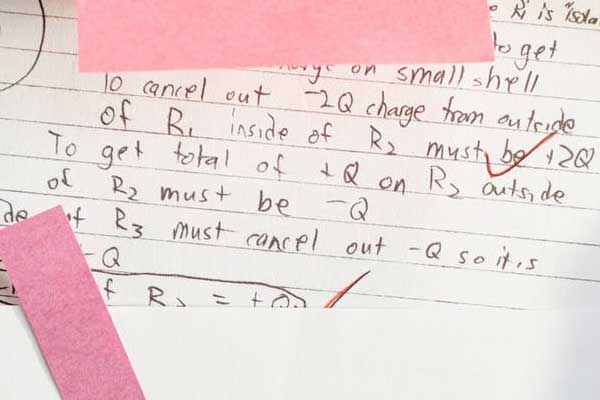 R1 is "isola
to get
charge on small shell
To cancel out -2Q charge from outside
of R1 inside of R2 must be +2Q
To get total of +Q on R2 outside
of R2 must be -Q
de of R3 must cancel out -Q so it,s
-Q
f R3 = +Q